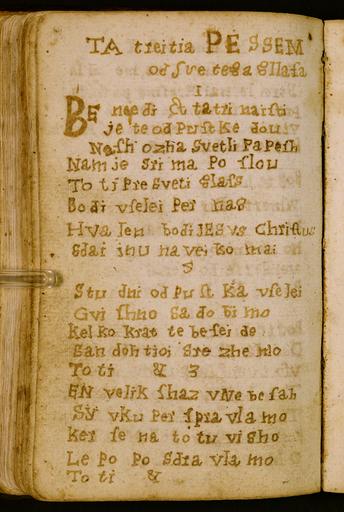 TA treitia PESSEM
od ſvetega Glaſa
I
BE nedi
je te od Puſtke
Naſh ozha Svetli Papeſh
Nam je Sri ma Po ſlou
To ti Pre Sveti Glaſs
Bo di vſelei Per nas
Hva len bodi JESVS Chriſtus
Sdai inu na vei ko mai
Stu dni od Pu ſt Ka vſe lei
Gvi ſhno Sa do bi mo
Kel ko Krat te be ſei de
San Sre zhe mo
To ti & 3
EN velik ſhaz vNe be ſah
SY vKu Per ſpra vla mo
Ker ſe na to tu vi sho
Le Po Po Sdra vla mo
To ti &